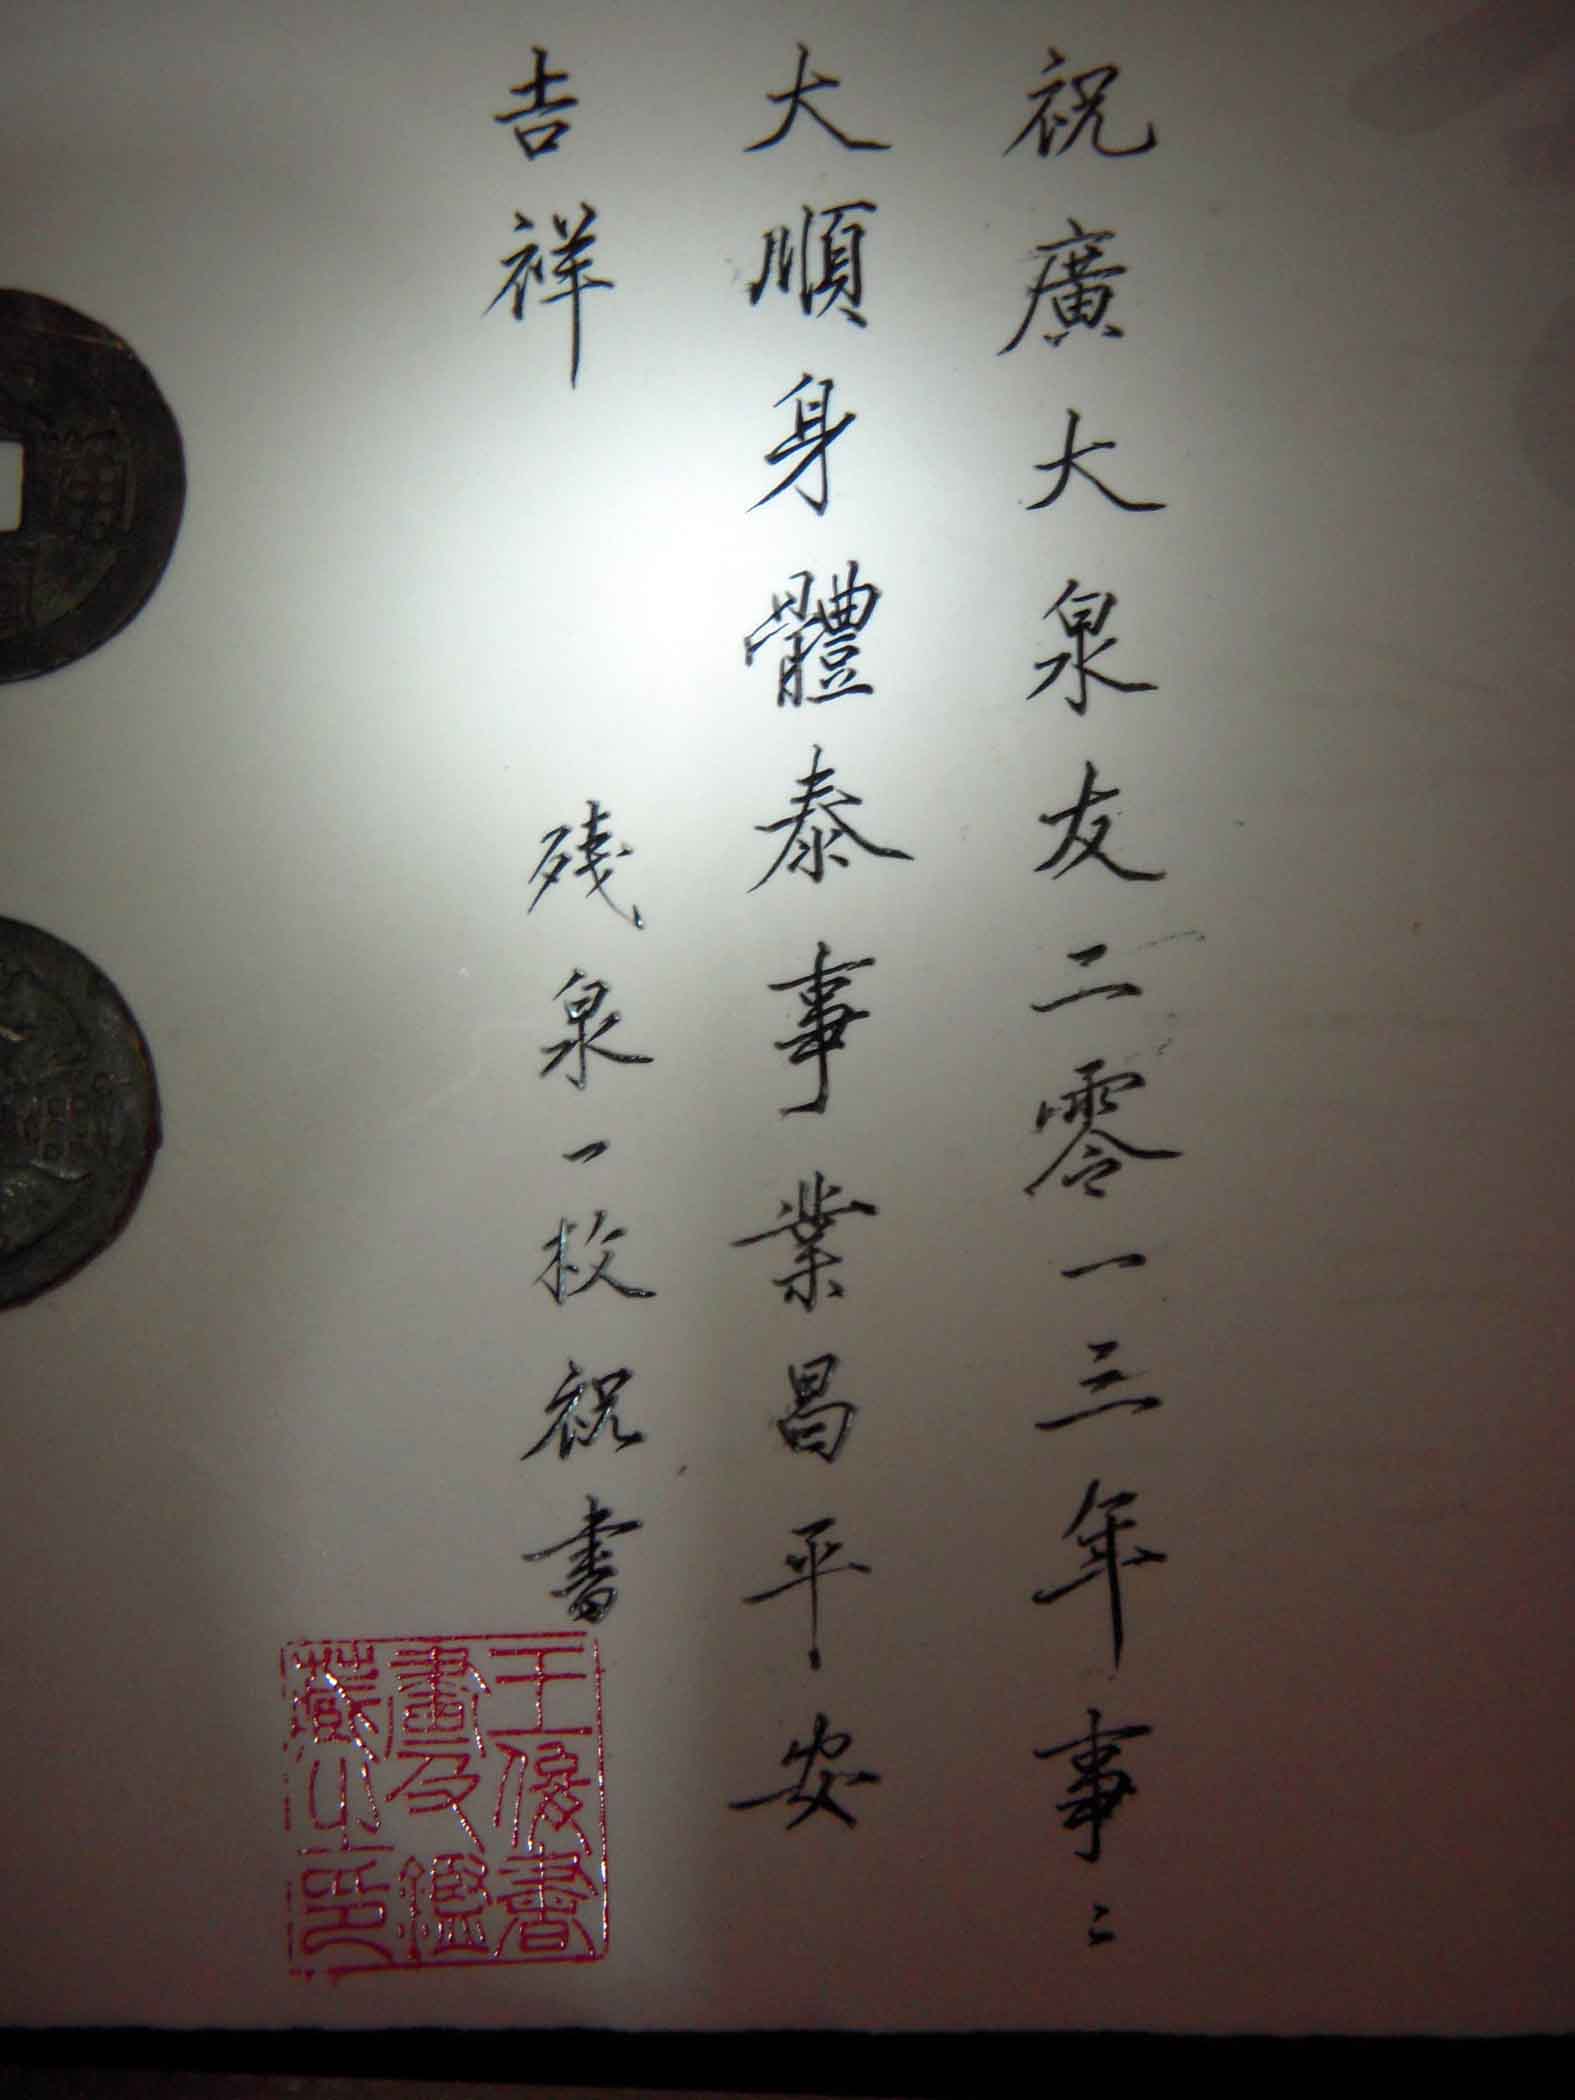 祝廣大泉友二零一三年事〻
大順身體泰事業昌平安
吉祥
殘泉一枚祝書
王俊書
畫及鑑
藏之印